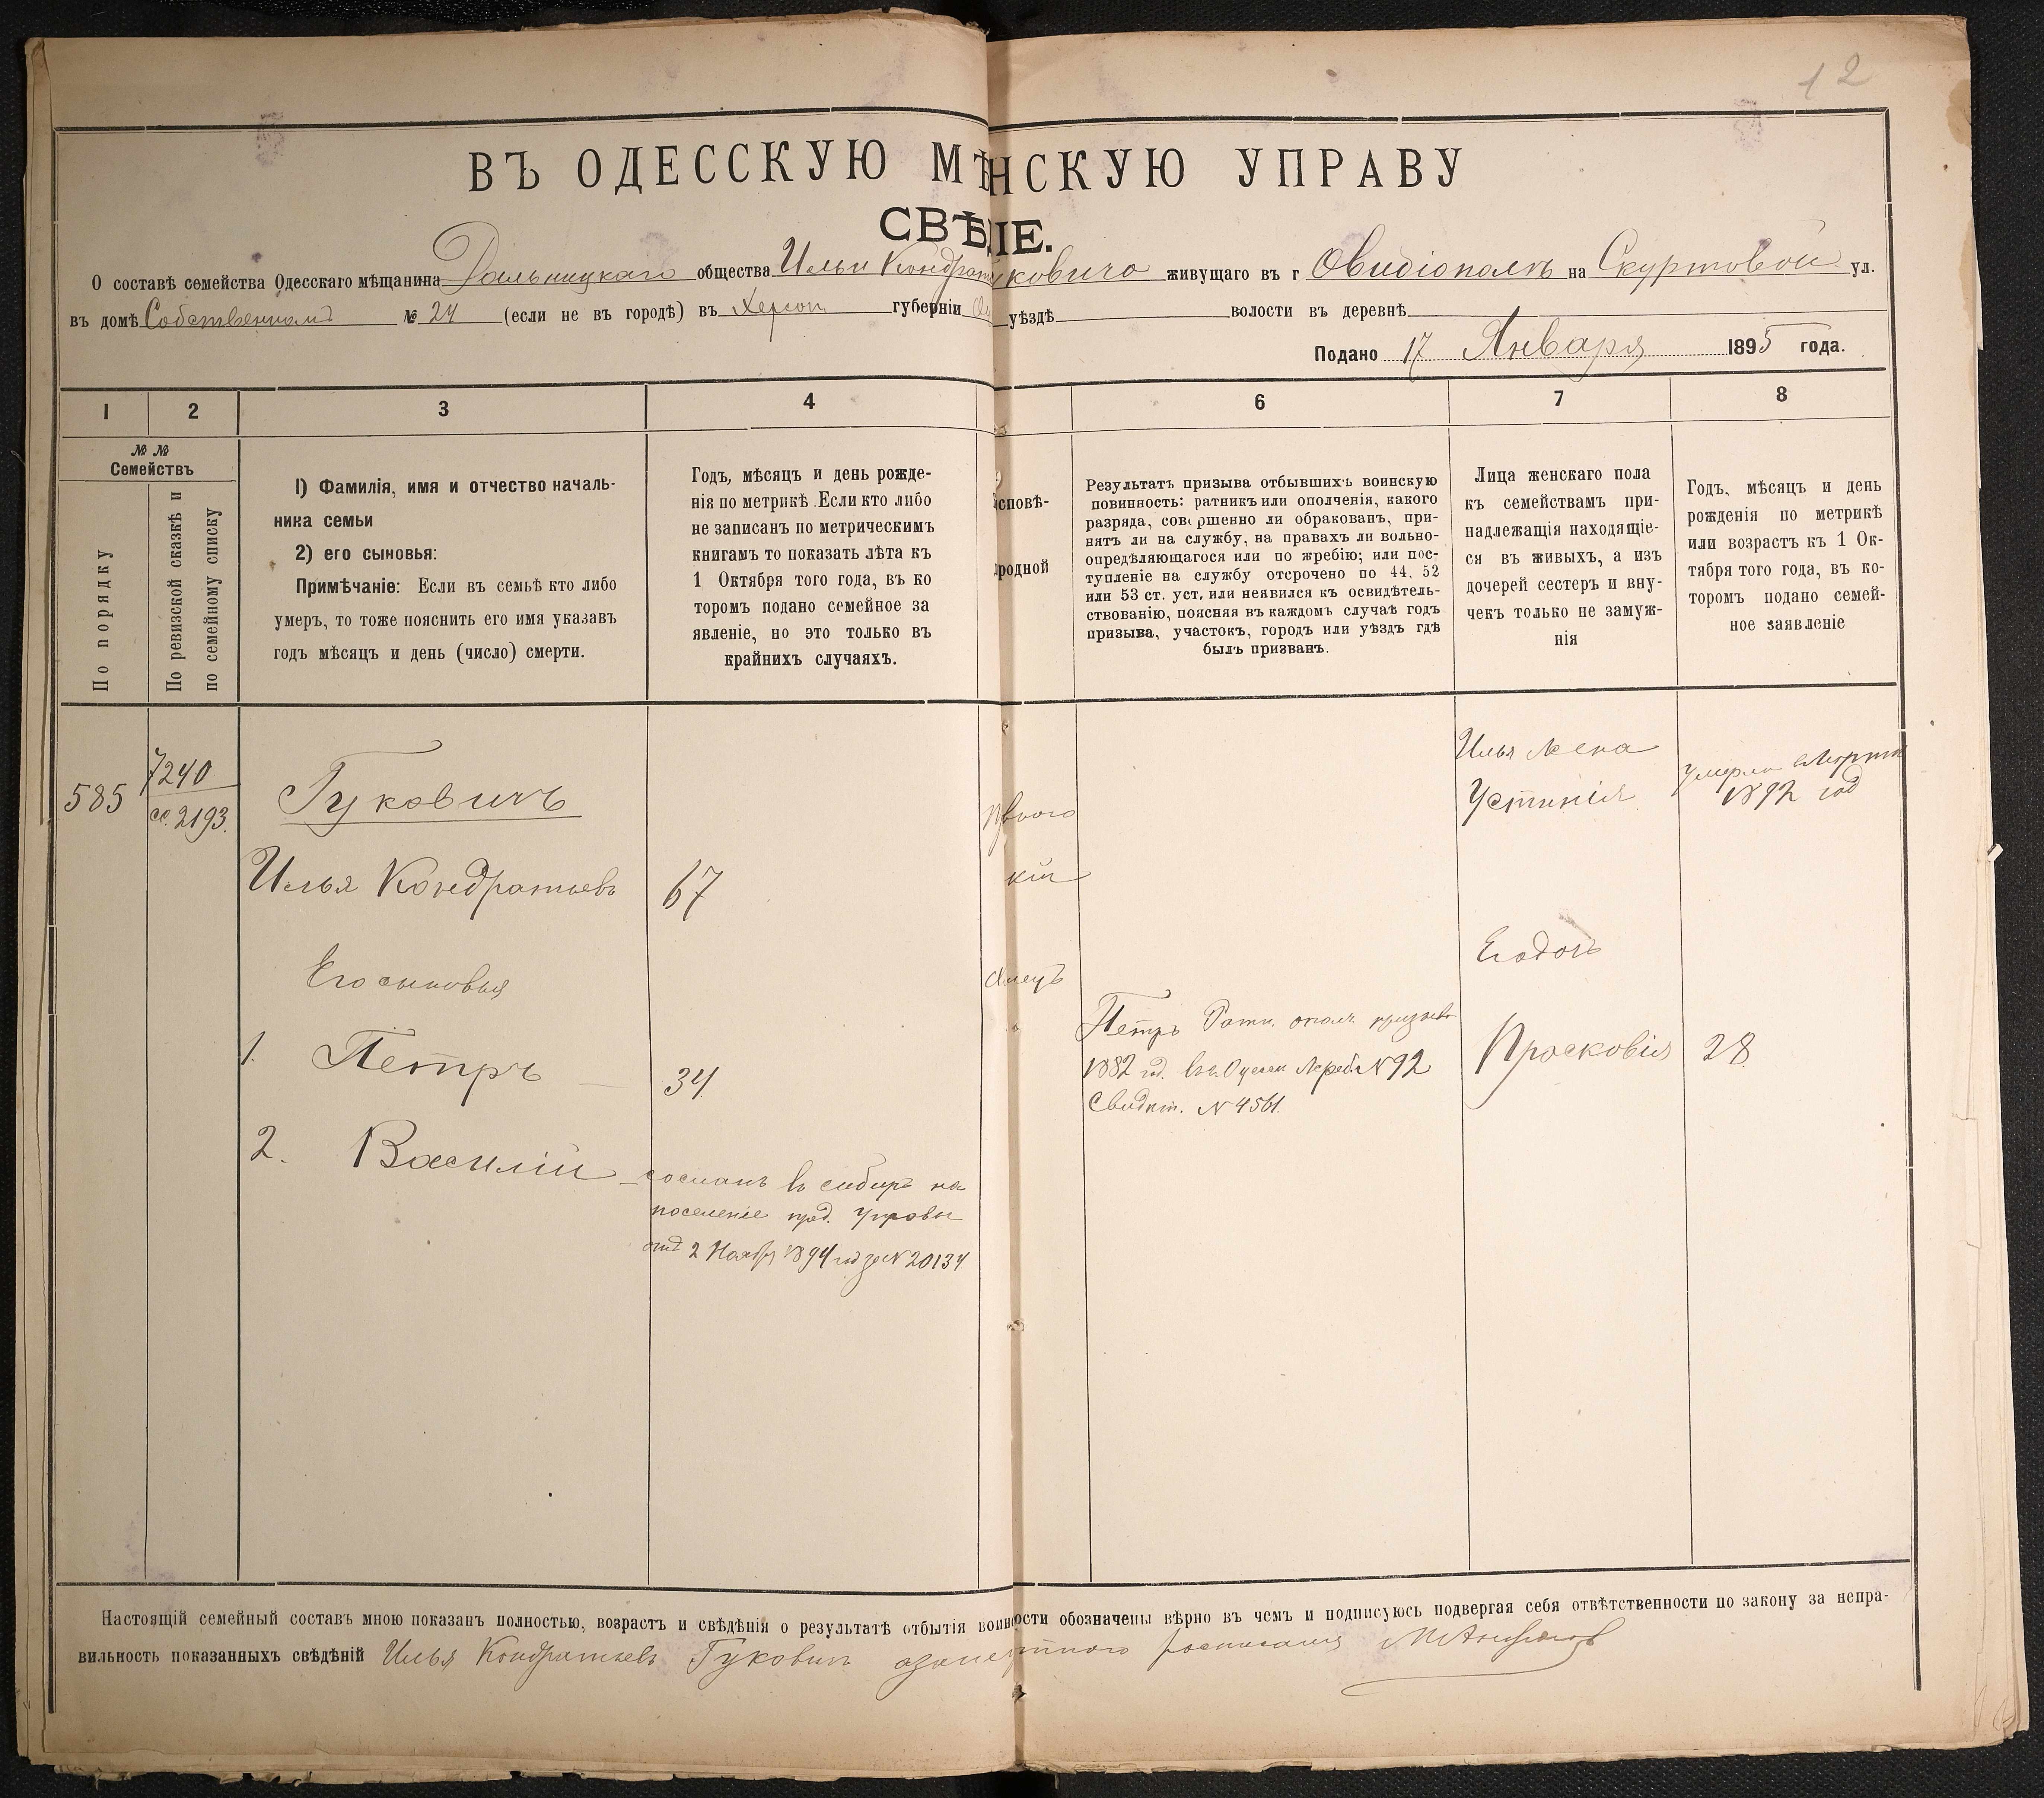 12
ВЪ ОДЕССКУЮ МѢНСКУЮ УПРАВУ
СВѢІЕ.
О составѣ семейства Одесскаго мѣщанина Дальницкаго общества Ильи Кондрат уковича живущаго въ г Овидіополѣ на Скуртовой ул.
въ домѣ Собственномъ № 24 (если не въ городѣ) въ Херсон губерніи Од уѣздѣ волости въ деревнѣ
Подано 17 Января 1895 года.
1 2 3 4 6 7 8
№ №
Семействъ
По порядку
По ревизской сказкѣ и
по семейному списку
1) Фамилія, имя и отчество началь-
ника семьи
2) его сыновья:
Примѣчаніе: Если въ семьѣ кто либо
умеръ, то тоже пояснить его имя указавъ
годъ мѣсяцъ и день (число) смерти.
Годъ, мѣсяцъ и день рожде-
нія по метрикѣ. Если кто либо
не записанъ по метрическимъ
книгамъ то показать лѣта къ
1 Октября того года, въ ко
торомъ подано семейное за
явленіе, но это только въ
крайнихъ случаяхъ.
сповѣ-
родной
Результатъ призыва отбывшихъ воинскую
повинность: ратникъ или ополченія, какого
разряда, совершенно ли обракованъ, при-
нятъ ли на службу, на правахъ ли вольно-
опредѣляющагося или по жребію; или пос-
тупленіе на службу отсрочено по 44, 52
или 53 ст. уст, или неявился къ освидѣтель-
ствованію, поясняя въ каждомъ случаѣ годъ
призыва, участокъ, городъ или уѣздъ гдѣ
былъ призванъ.
Лица женскаго пола
къ семействамъ при-
надлежащія находящіе-
ся въ живыхъ, а изъ
дочерей сестеръ и вну-
чекъ только не замуж-
нія
Годъ, мѣсяцъ и день
рожденія по метрикѣ
или возрастъ къ 1 Ок-
тября того года, въ ко-
торомъ подано семей-
ное заявленіе
585
7240
сс. 2193.
Гуковичъ
Илья Кондратьевъ 67
Его сыновья
1. Петръ 34
2. Василій сосланъ въ сибирь на
поселеніе пред. Управы
отъ 2 Ноябр 1894 год за № 20134
вного
кій
Петръ Ратн. опол. призыва
1882 год. въ г. Одессѣ Жреб. № 92
Свидѣт. № 4561.
Илья жена
Устинія
умерла Март
1892 год
Его доч
Прасковія 28
Настоящій семейный составъ мною показанъ полностью, возрастъ и свѣдѣнія о результатѣ отбытія воинности обозначены вѣрно въ чемъ и подписуюсь подвергая себя отвѣтственности по закону за непра-
вильность показанныхъ свѣдѣній Илья Кондратьевъ Гуковичъ